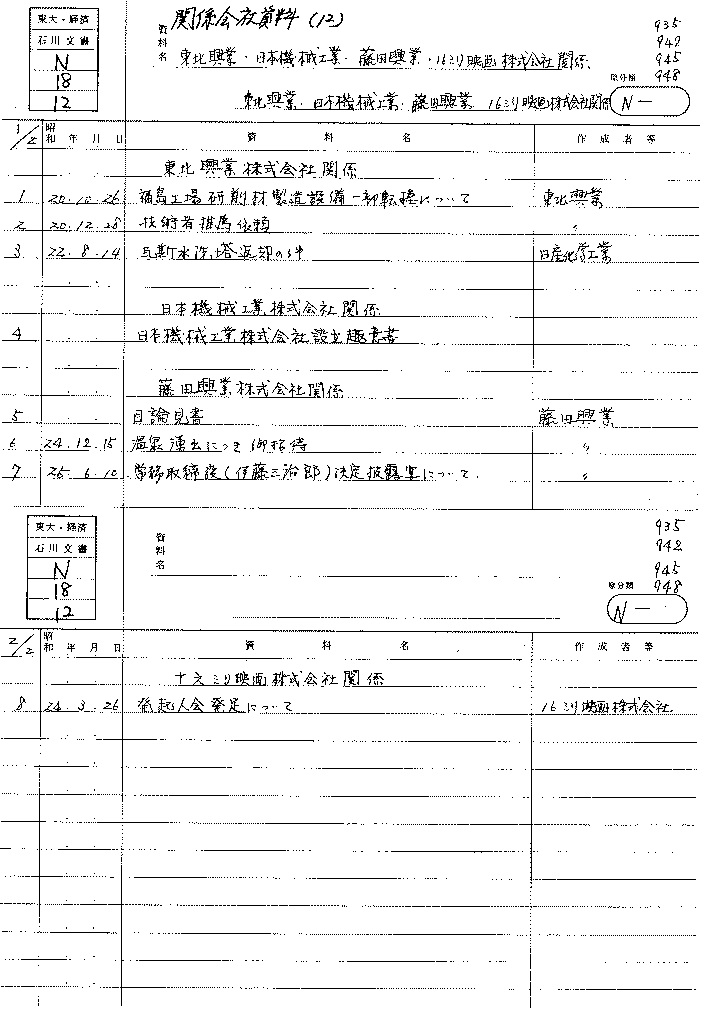 関係会社資料(12)
東大・経済
石川文書
N
18
12
資料名
東北興業・日本機械工業・藤田興業・16ミリ映画株式会社関係
東北興業・日本機械工業・藤田興業 16ミリ映画株式会社関係
935
942
945
948
原分類
N-
1/2 昭和 年 月 日 資料名 作成者等
東北興業株式会社関係
1 20.10.26 福島工場研削材製造設備一部転換について 東北興業
2 20.12.28 技術者推薦依頼 〃
3 22.8.14 瓦斯水洗塔返却の件 日産化学工業
日本機械工業株式会社関係
4 日本機械工業株式会社設立趣意書
藤田興業株式会社関係
5 目論見書 藤田興業
6 24.12.15 温泉湧出につき御招待 〃
7 25.6.10 常務取締役(伊藤三治郎)決定披露宴について 〃
東大・経済
石川文書
N
18
12
資料名
935
942
945
948
原分類
N-
2/2 昭和 年 月 日 資料名 作成者等
十六ミリ映画株式会社関係
8 24.3.26 発起人会発足について 16ミリ映画株式会社